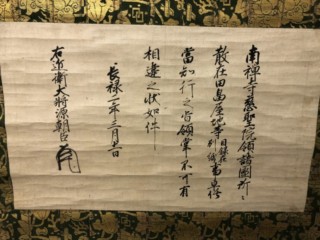 南禅寺慈聖院領諸國所々
散在田畠屋地等目録在別紙事任
當知行之旨領掌不可有
相違之状如件
長禄二年三月
右近衛大将源朝臣